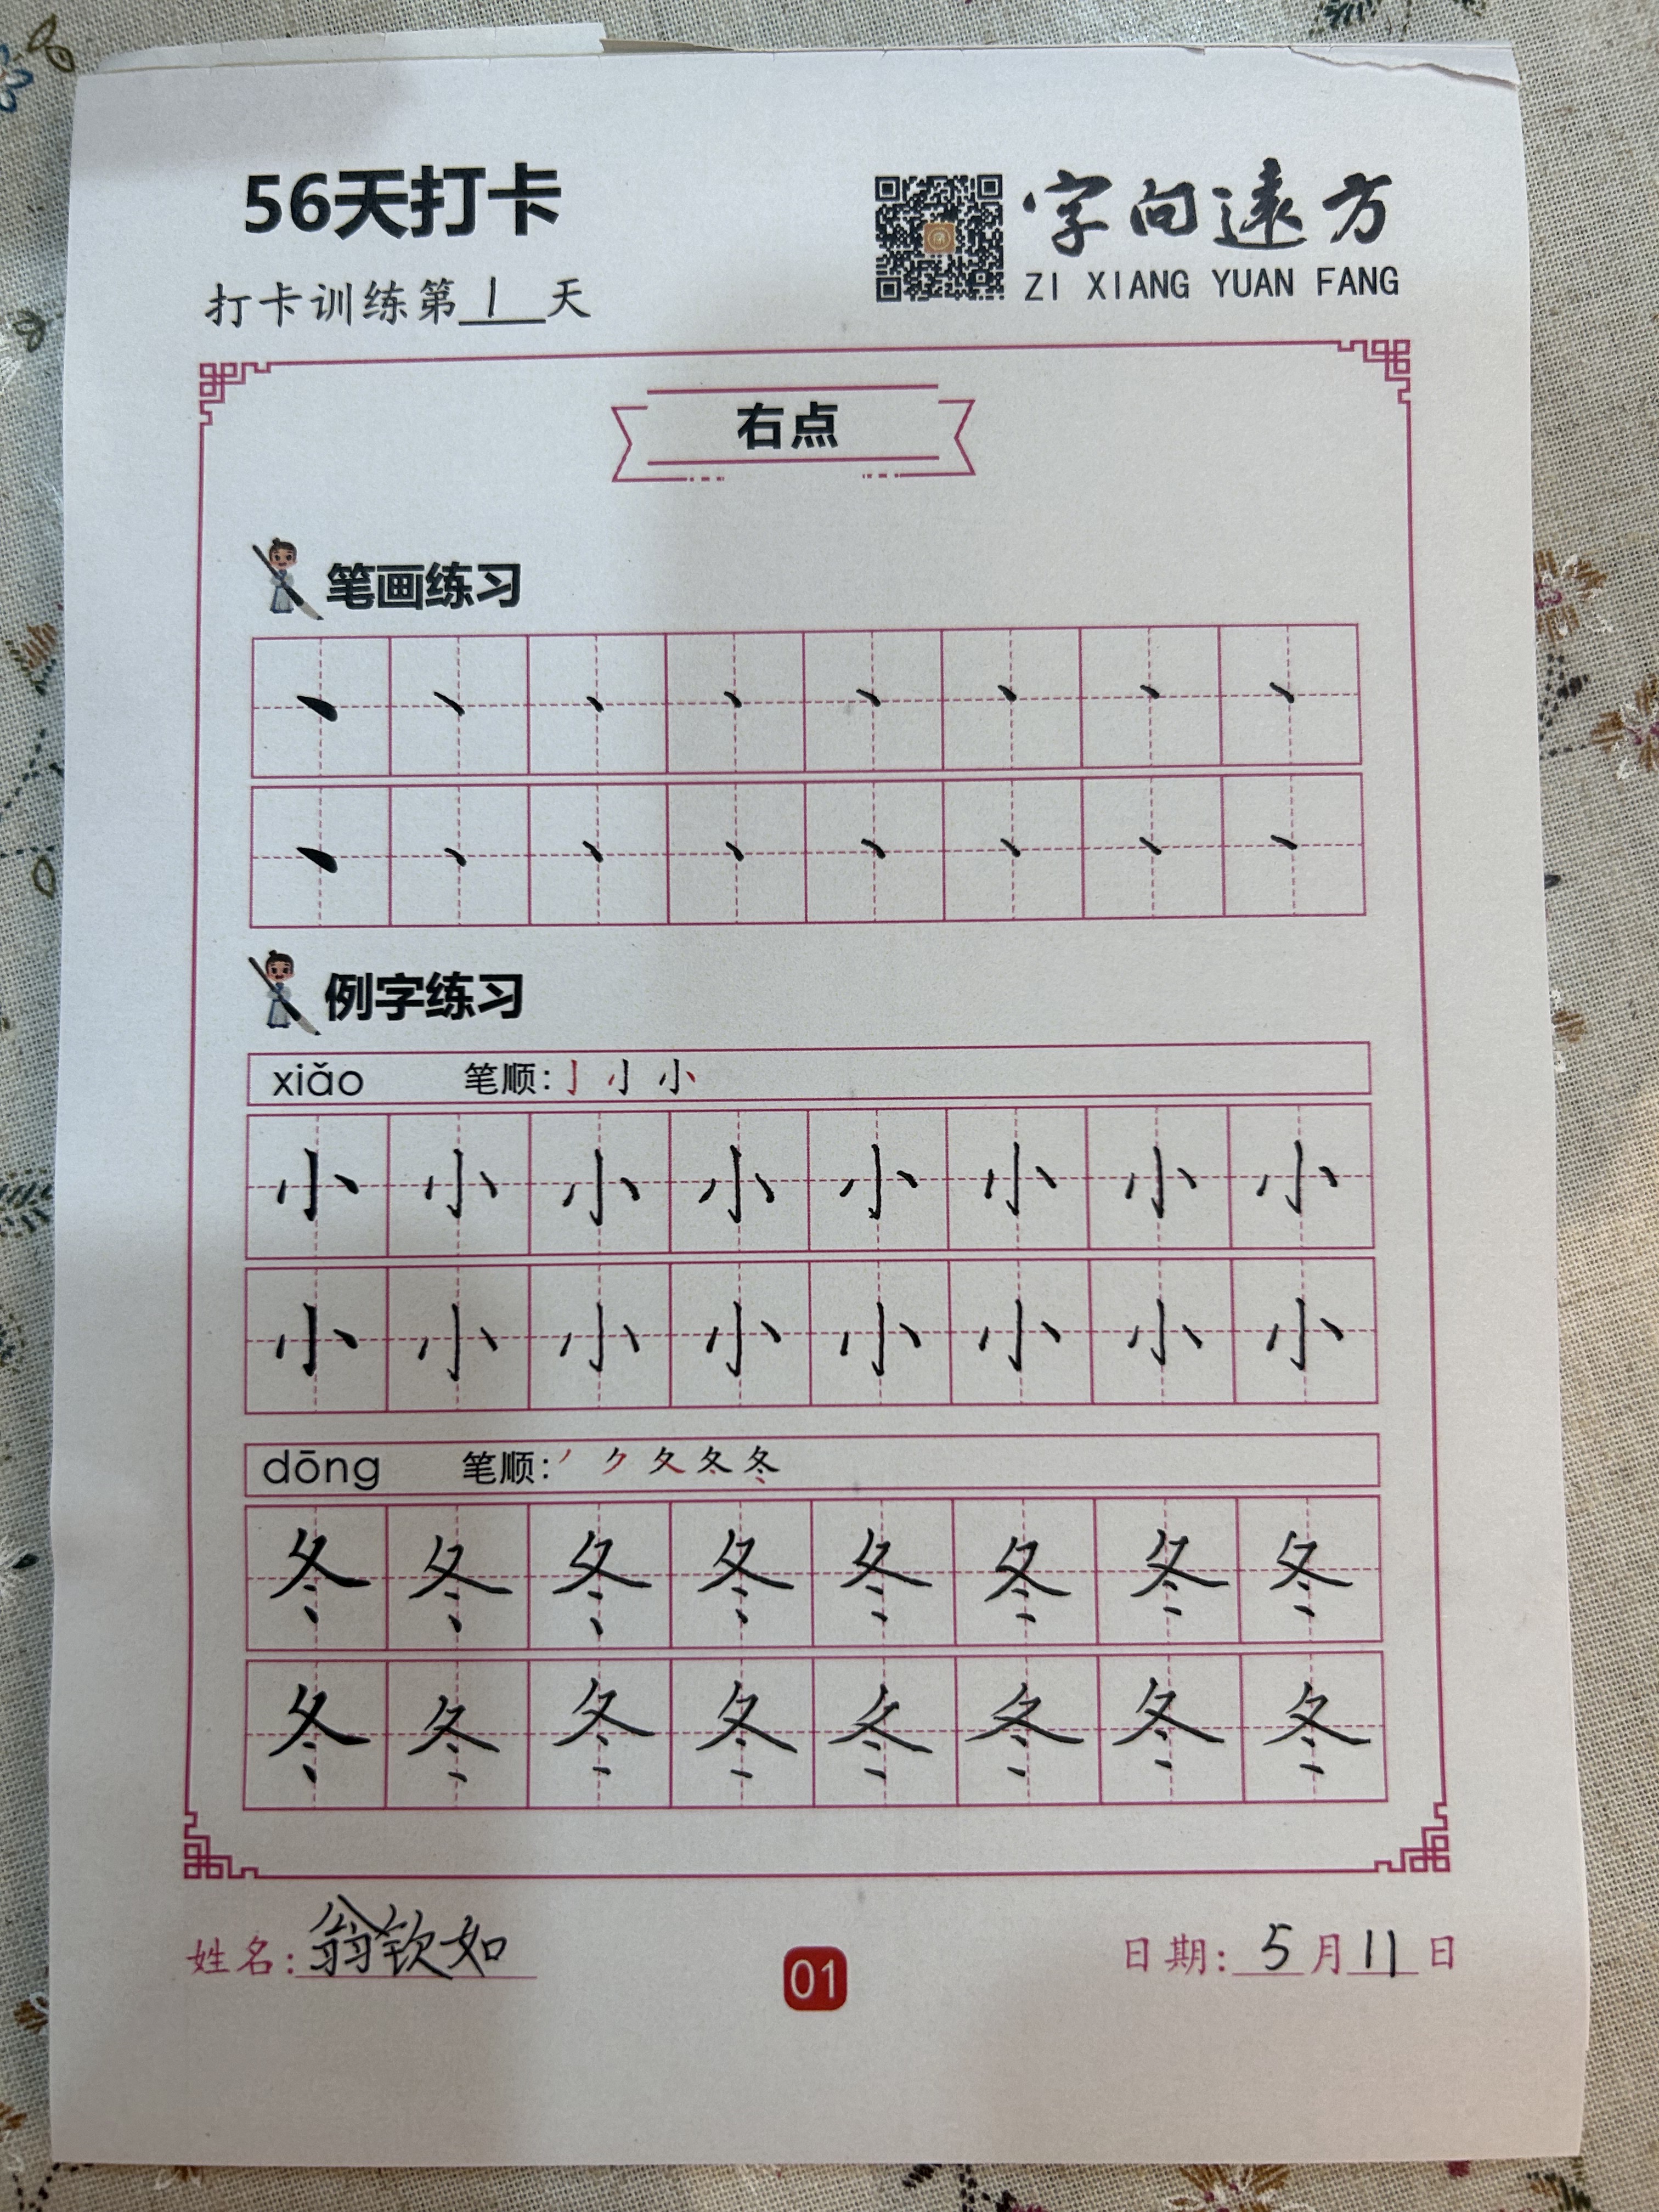 56天打卡
字向遠方
ZI XIANG YUAN FANG
打卡训练第1天
右点
笔画练习
丶丶丶丶丶丶丶丶
丶丶丶丶丶丶丶丶
例字练习
xiǎo 笔顺: 亅 小
小小小小小小小小
小小小小小小小小
dōng 笔顺: 丿 ク 夂 冬
冬冬冬冬冬冬冬冬
冬冬冬冬冬冬冬冬
姓名: 翁钦如
01
日期: 5月11日